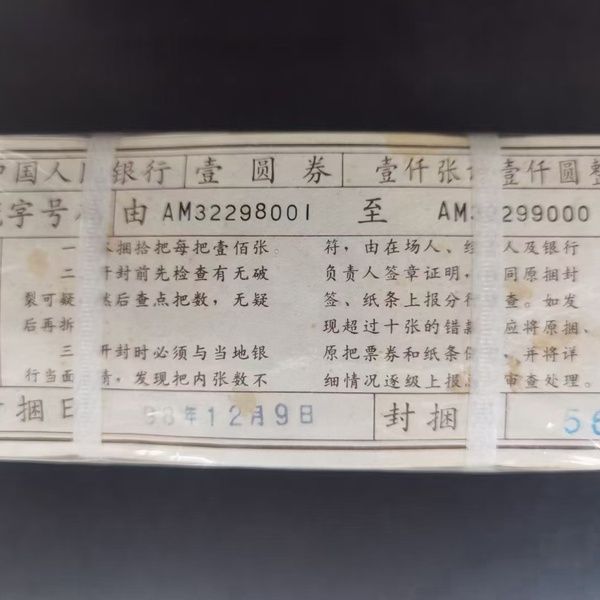 中国人 银行 壹圆券 壹仟张 壹仟圆整
字号 由 AM32298001 至 AM3 299000
一 捆拾把每把壹佰张
二 开封前先检查有无破
裂可疑 然后查点把数，无疑
后再拆
三 开封时必须与当地银
行当面 清，发现把内张数不
符，由在场人、经 人及银行
负责人签章证明， 同原捆封
签、纸条上报分行 查。如发
现超过十张的错 应将原捆、
原把票券和纸条 ，并将详
细情况逐级上报 审查处理。
捆日 98年12月9日 封捆 56